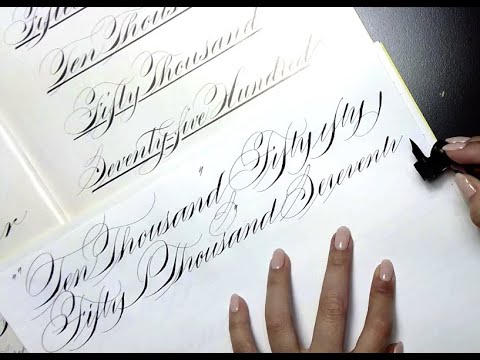 Ten Thousand
Fifty Thousand
Seventy-five Hundred
"Ten Thousand" Fifty ifty
Fifty Thousand